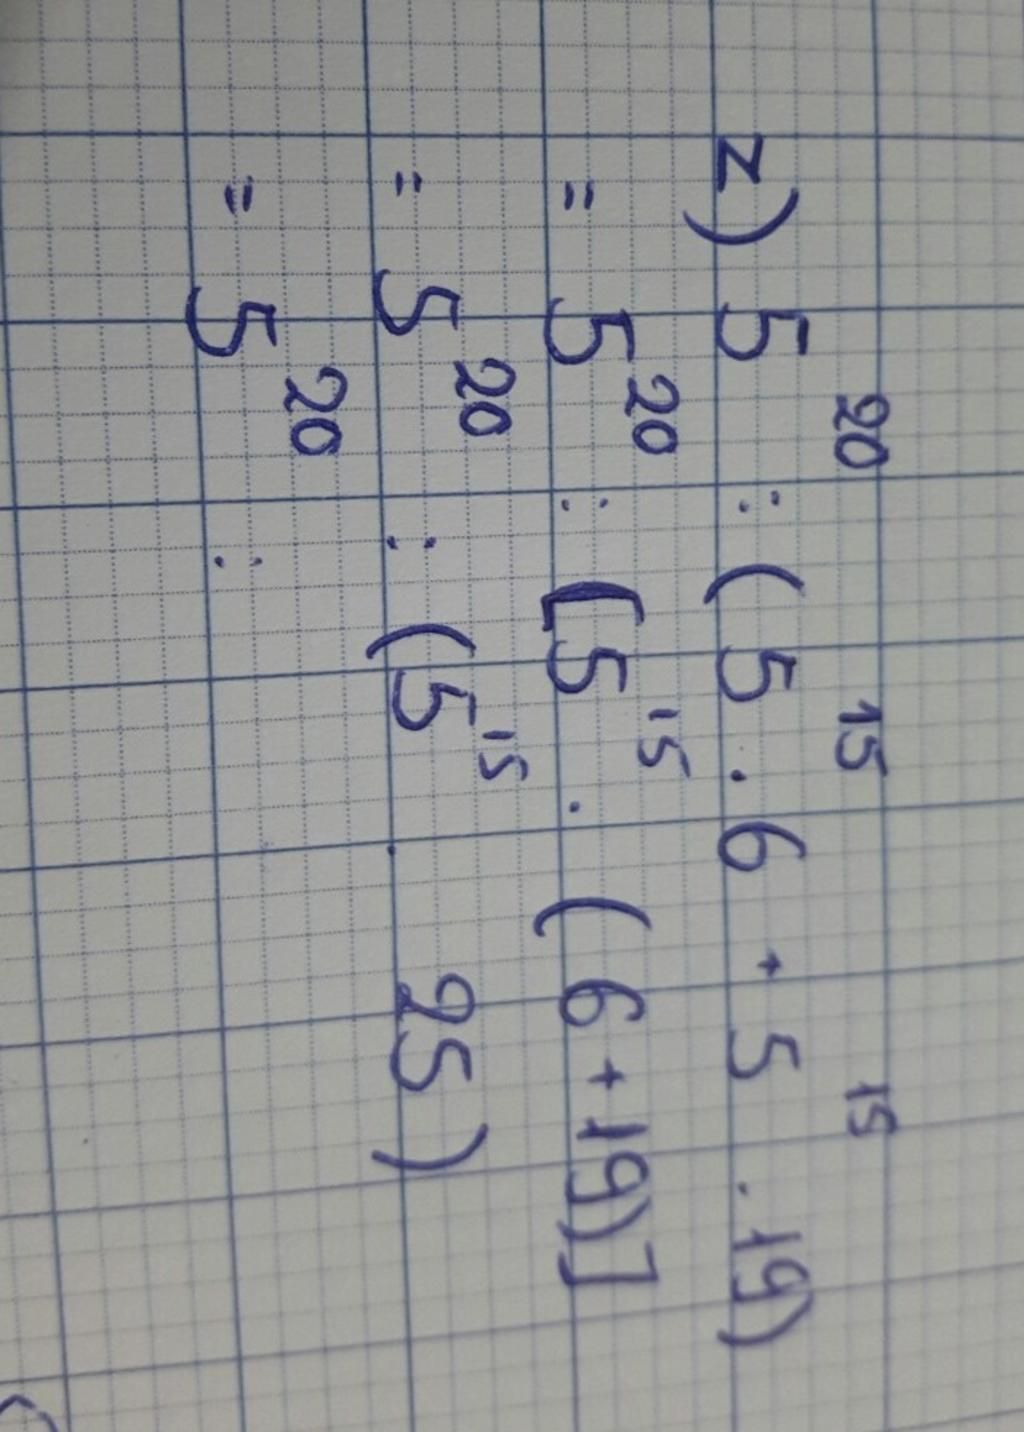 z) 5²⁰ : (5¹⁵ . 6 + 5¹⁵ . 19)
= 5²⁰ : [5¹⁵ . (6 + 19)]
= 5²⁰ : (5¹⁵ . 25)
= 5²⁰ :